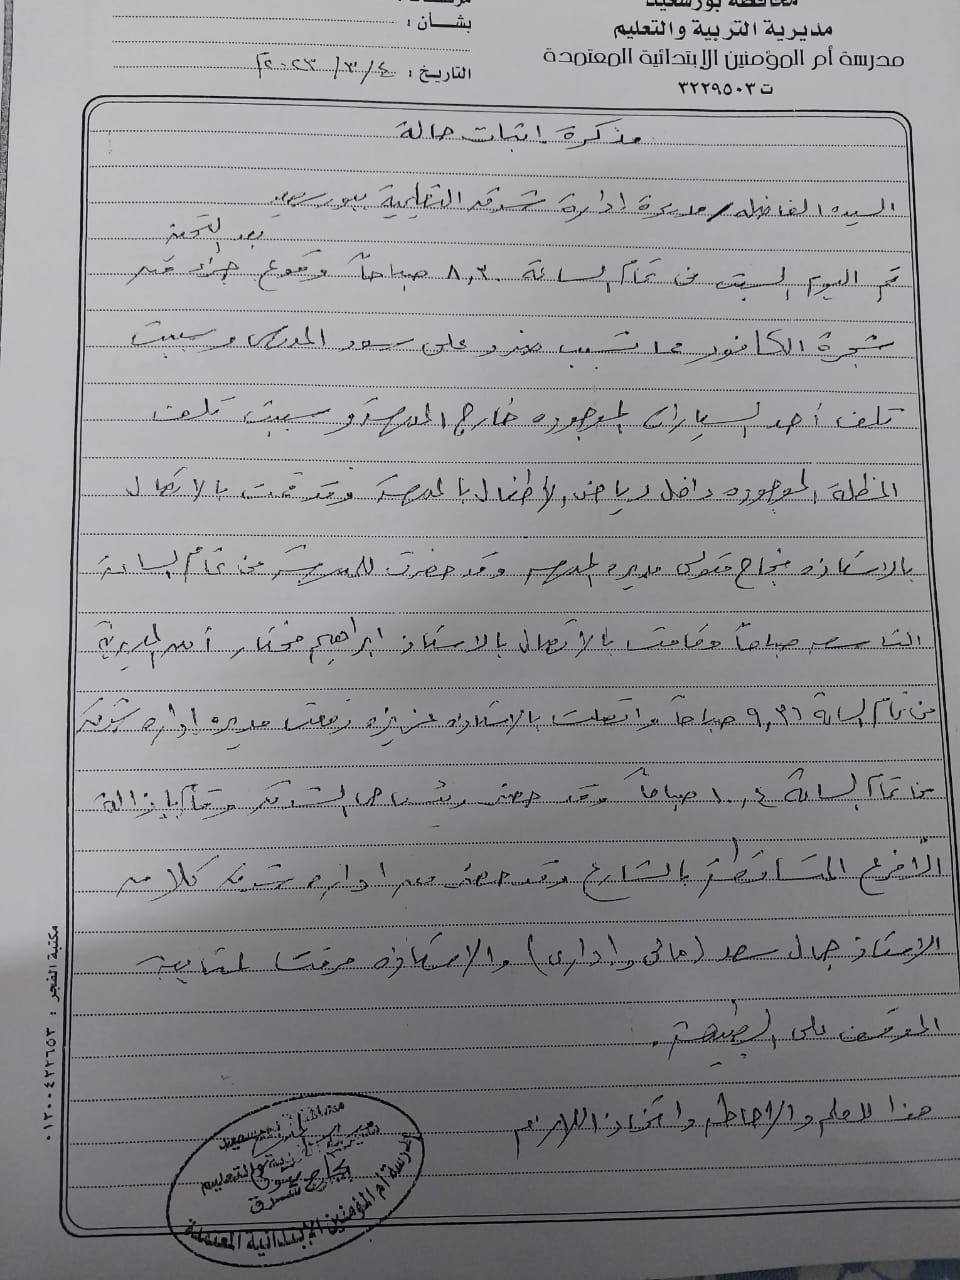 محافظة بورسعيد
مديرية التربية والتعليم
مدرسة أم المؤمنين الإبتدائية المعتمدة
ت ٣٢٢٩٥٠٣
بشأن :
التاريخ : ٤ / ٣ / ٢٠٢٣م
مذكرة إثبات حالة
السيدة الفاضلة / مديرة ادارة شرق التعليمية ببورسعيد
تم اليوم السبت فى تمام الساعة ٨,٣٠ صباحاً وقوع جزء من
شجرة الكافور مما تسبب على سور المدرسة وسببت
تلف أحد السيارات الموجوده خارج المدرسة وسببت تلف
المظلة الموجوده داخل رياض الأطفال بالمدرسة وقد قمت بالاتصال
بالاستاذه نجاح متولى مديره المدرسه وقد حضرت للمدرسة فى تمام الساعة
التاسعه صباحاً وقامت بالاتصال بالاستاذ ابراهيم مختار أمن المديرية
فى تمام الساعة ٩,٣٦ صباحاً واتصلت بالاستاذه عزيزه رفعت مديره اداره شرق
فى تمام الساعة ١٠,٤ صباحاً وقد حضر حى الشرق وقام بإزالة
الأفرع المتساقطة بالشارع وقد حضر من اداره شرق كلا من
الاستاذ جمال سعد (مالى وادارى) والاستاذه مرفت لمتابعة
الموقف على الطبيعة .
هذا للعلم والإحاطه واتخاذ اللازم
مدرسة أم المؤمنين الإبتدائية المعتمدة
مكتبة الفجر : ٠١٢٠٠٤٢٢٦٥٣